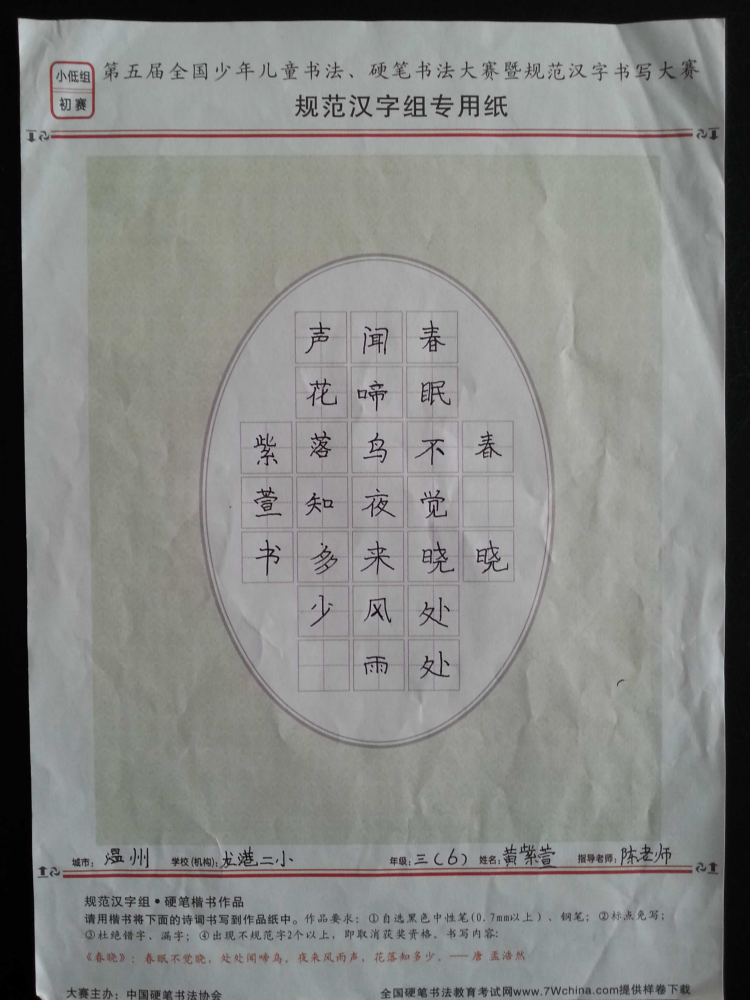 小低组
初赛
第五届全国少年儿童书法、硬笔书法大赛暨规范汉字书写大赛
规范汉字组专用纸
春晓
春眠不觉晓处处
闻啼鸟夜来风雨
声花落知多少
紫萱书
城市：温州 学校(机构)：龙港二小 年级：三(6) 姓名：黄紫萱 指导老师：陈老师
规范汉字组·硬笔楷书作品
请用楷书将下面的诗词书写到作品纸中。作品要求：①自选黑色中性笔(0.7mm以上)、钢笔；②标点免写；
③杜绝错字、漏字；④出现不规范字2个以上，即取消获奖资格。书写内容：
《春晓》：春眠不觉晓，处处闻啼鸟。夜来风雨声，花落知多少。——唐 孟浩然
大赛主办：中国硬笔书法协会 全国硬笔书法教育考试网www.7Wchina.com提供样卷下载